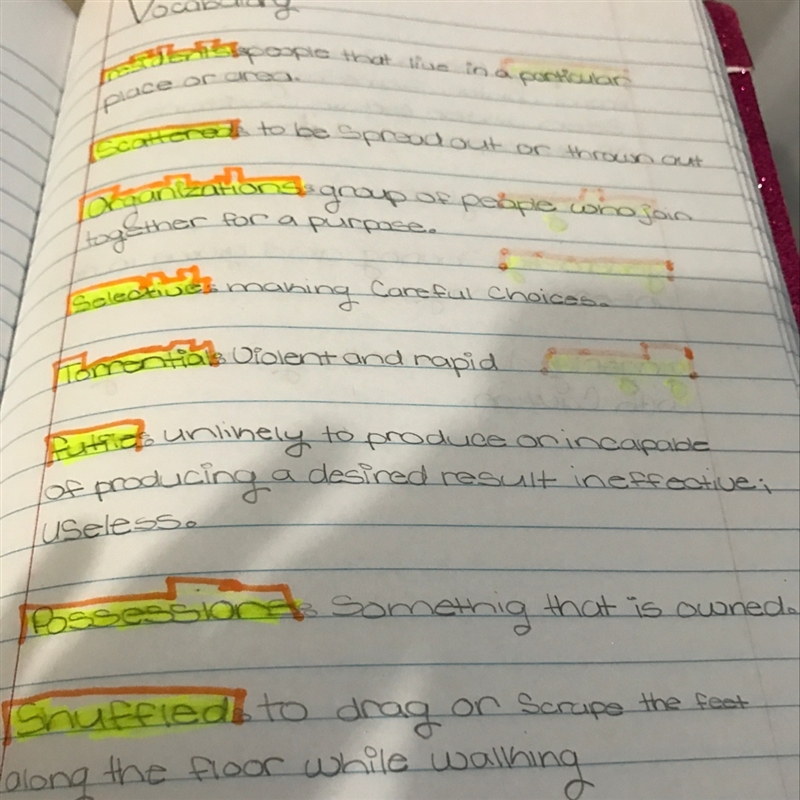 Vocabulary
residents: people that live in a particular
place or area.
Scattered: to be spread out or thrown out
Organizations: group of people who join
together for a purpose.
Selective: making careful choices.
Torrential: Violent and rapid
futile: unlinely to produce or incapable
of producing a desired result ineffective;
useless.
Possessions: Somethig that is owned.
Shuffled: to drag or scrape the feet
along the floor while walking